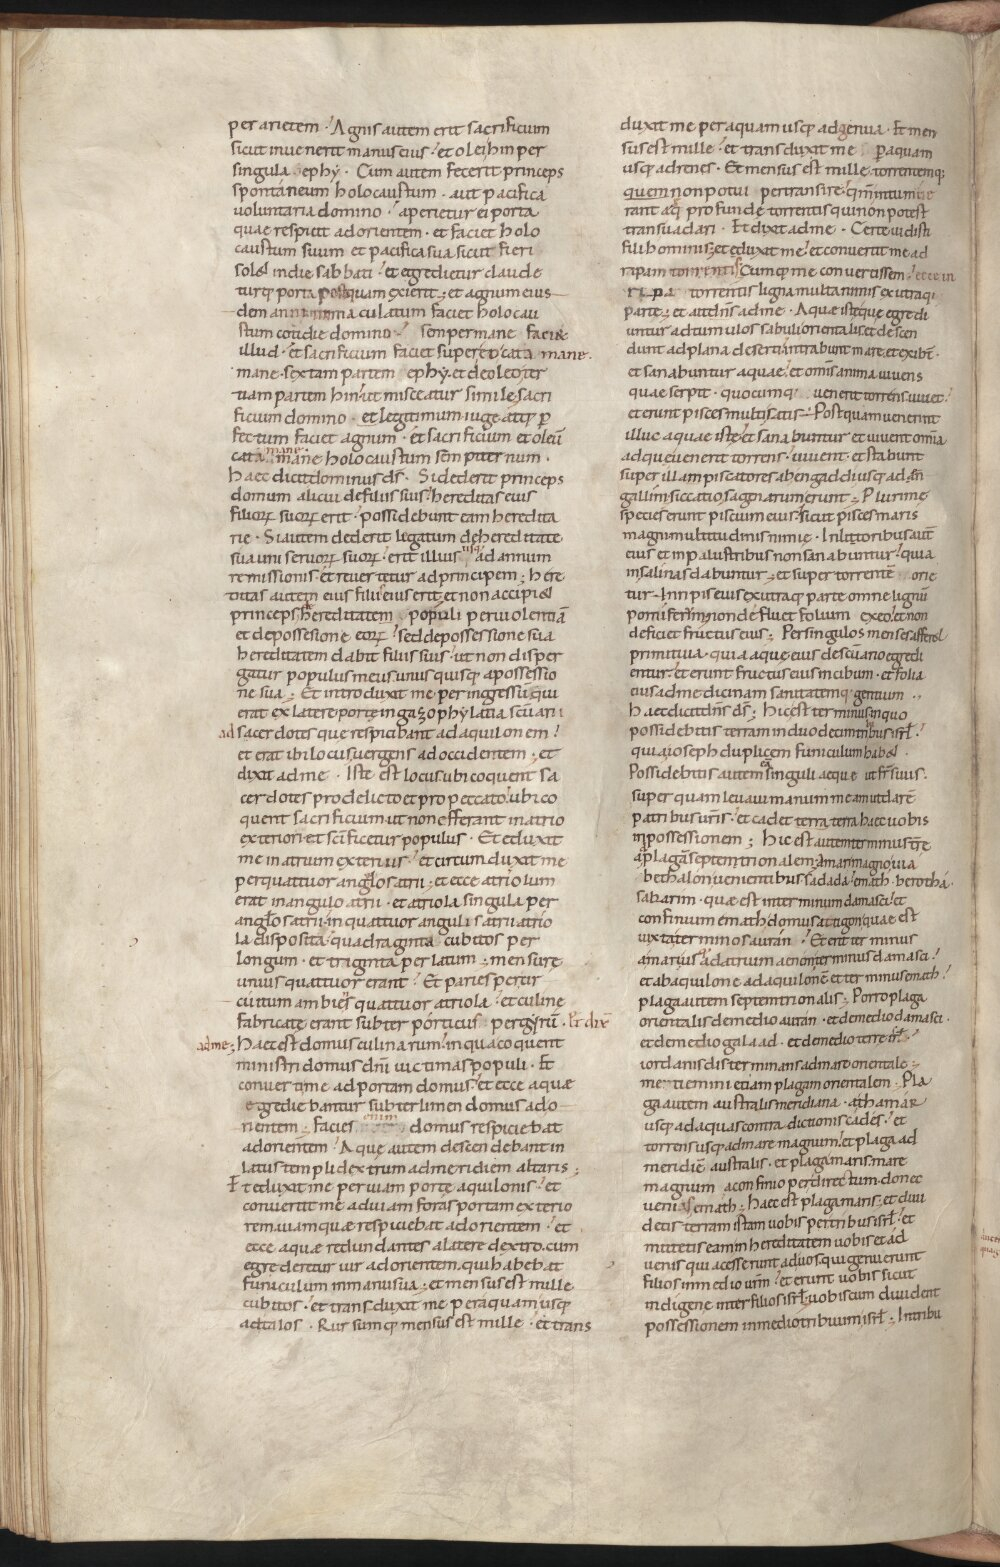 per arietem · Agnis autem erit sacrificium
sicut invenerit manus eius · et olei hin per
singula ephy · Cum autem fecerit princeps
spontaneum holocaustum · aut pacifica
voluntaria domino · aperietur ei porta
quae respicit ad orientem · et faciet holo
caustum suum et pacifica sua sicut fieri
solet in die sabbati · et egredietur claude
turq; porta postquam exierit · et agnum eius
dem anni inmaculatum faciet holocau
stum cotidie domino · semper mane faciet
illud · et sacrificium faciet super eo cata mane
mane · sextam partem ephy · et de oleo ter
tiam partem hin · ut misceatur simile sacri
ficium domino · et legitimum iuge atq; p
fectum faciet agnum · et sacrificium et oleū
cata mane mane holocaustum sempiternum ·
Haec dicit dominus ds · Si dederit princeps
domum alicui de filiis suis · hereditas eius
filiorum suorum erit · possidebunt eam heredita
rie · Si autem dederit legatum de hereditate
sua uni servorum suorum · erit illius usq; ad annum
remissionis · et revertetur ad principem · here
ditas autem eius filii eius erit · et non accipiet
princeps de hereditatem populi per violentiā
et de possesione eorum · sed de possessione sua
hereditatem dabit filiis suis · ut non disper
gatur populus meus unus quisq; a possessio
ne sua · Et introduxit me per ingressū qui
erat ex latere porte in gazophylatia scuari
ad sacerdotes que respiciebant ad aquilonem ·
et erat ibi locus vergens ad occidentem · et
dixit ad me · Iste est locus ubi coquent sa
cerdotes pro delicto et pro peccato · ubi co
quent sacrificium ut non efferant in atrio
exteriori et scificetur populus · Et eduxit
me in atrium exterius · et circumduxit me
per quattuor angulos atrii · et ecce atriolum
erat in angulo atrii · et atriola singula per
angulos atrii · in quattuor anguli satrii atrio
la disposita · quadraginta cubitos per
longum · et triginta per latum · mensure
unius quattuor erant · Et paries per cir
cuitum ambiens quattuor atriola · et culine
fabricate erant subter porticus per girū · Et dix
ad me · Haec est domus culinarum · in qua coquent
ministri domus dñi victimas populi · Et
convertit me ad portam domus · et ecce aquae
egrediebantur subter limen domus ad o
rientem · Facies enim domus respiciebat
ad orientem · Aque autem descendebant in
latus templi dextrum ad meridiem altaris ·
Et eduxit me per viam porte aquilonis · et
convertit me ad viam foras portam exterio
rem viam quae respiciebat ad orientem · et
ecce aquae redundantes a latere dextro · cum
egrederetur vir ad orientem · qui habebat
funiculum in manu sua · et mensus est mille
cubitos · et transduxit me per aquam usq;
ad talos · Rursumq; mensus est mille · et trans
duxit me per aquam usq; ad genua · Et men
sus est mille · et transduxit me p aquam
usq; ad renes · Et mensus est mille torrentemq;
quem non potui pertransire · qm intume
rant aq; profunde torrentis qui non potest
transvadari · Et dixit ad me · Certe vidisti
fili hominis · et eduxit me · et convertit me ad
ripam torrentis · Cumq; me convertissem · et ecce in
ripa torrentis ligna multa nimis ex utraq;
parte · et ait dñs ad me · Aquae iste que egredi
untur ad tumulos sabuli orientalis · et descen
dunt ad plana deserti · intrabunt mare · et exibt ·
et sanabuntur aquae · et omnis anima vivens
quae serpit · quocumq; venerit torrens vivet ·
et erunt pisces multi satis · Postquam venerint
illuc aquae iste · et sanabuntur et vivent omnia
ad que venerit torrens · vivent · et stabunt
super illam piscatores · ab engaddi usq; ad an
gallim siccatio sagenarum erunt · Plurime
species erunt piscium eius · sicut pisces maris
magni multitudinis nimie · In litoribus aut
eius et in palustribus non sanabuntur · quia
in salinas dabuntur · et super torrente orie
tur · In ripis eius ex utraq; parte omne lignū
pomiferum · non defluet folium ex eo · et non
deficiet fructus eius · Per singulos menses afferet
primitiva · quia aque eius de scuario egredi
entur · et erunt fructus eius in cibum · et folia
eius ad medicinam sanitatemq; gentium ·
Haec dicit dñs ds · Hic est terminus in quo
possidebitis terram in duodecim tribus isrl ·
quia ioseph duplicem funiculum habet ·
Possidebitis autem eā singuli aeque ut fr suus ·
super quam levavi manum meam ut darē
patribus vris · et cadet terra terra haec vobis
in possessionem · Hic est autem terminus tre
a plaga septentrionalem · a mari magno via
bethalon venientibus sadada · emath · berotha ·
sabarim · quae est inter minum damasci · et
confinium emath domus atigon quae est
iuxta terminos auran · Et erit terminus
a mari usq; ad atrium aenon terminus damasci ·
et ab aquilone ad aquilonē et terminus emath ·
plaga autem septemtrionalis · Porro plaga
orientalis de medio auran · et de medio damasci ·
et de medio galaad · et de medio terre isrl ·
iordanis disterminans ad mare orientale ·
metiemini etiam plagam orientalem · Pla
ga autem australis meridiana · a thamar
usq; ad aquas contradictionis cades · et
torrens usq; ad mare magnum · et plaga ad
meridiē australis · et plaga maris mare
magnum a confinio per directum donec
venias emath · haec est plaga maris · et divi
detis terram istam vobis per tribus isrl · et
mittetis eam in hereditatem vobis et ad
venis qui accesserunt ad vos · qui genuerunt
filios in medio vrm · et erunt vobis sicut
indigene inter filios isrl · vobiscum divident
possessionem in medio tribuum isrl · In tribu